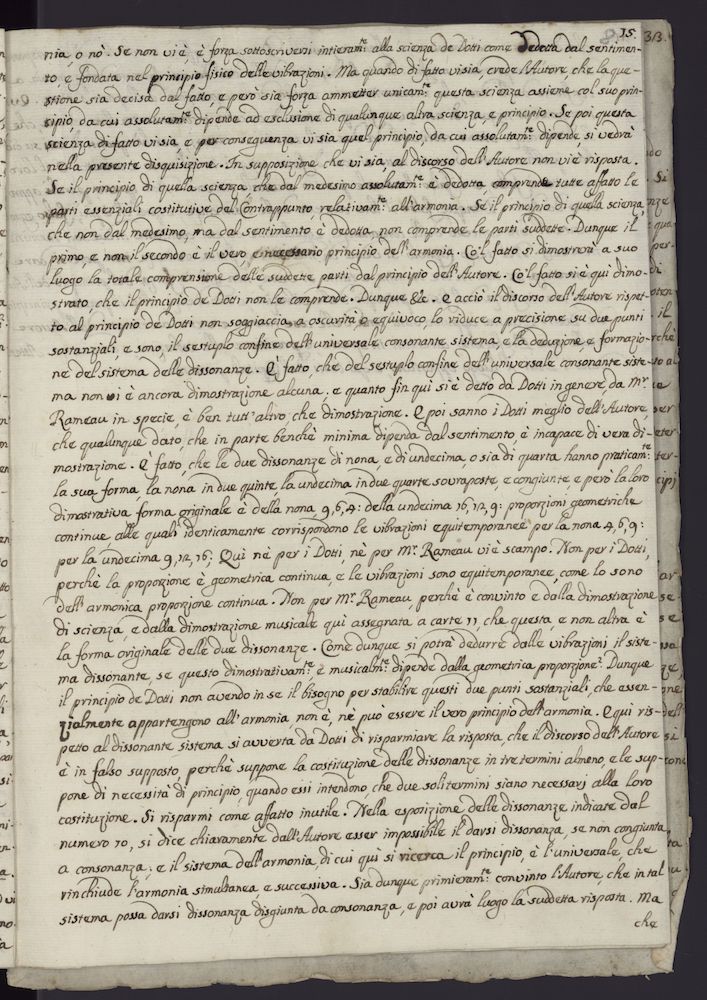 15. 313.
nia, o nò. Se non vi è, è forza sottoscriversi intieram.te alla scienza de Dotti come dedotta dal sentimen-
to, e fondata nel principio fisico delle vibrazioni. Ma quando di fatto vi sia, crede l'Autore, che la que-
stione sia decisa dal fatto, e però sia forza ammetter unicam.te questa scienza assieme col suo prin-
cipio, da cui assolutam.te dipende ad esclusione di qualunque altra scienza, e principio. Se poi questa
scienza di fatto vi sia, e per conseguenza vi sia quel principio, da cui assolutam.te dipende, si vedrà
nella presente disquisizione. In supposizione che vi sia, al discorso dell'Autore non vi è risposta.
Se il principio di quella scienza, che dal medesimo assolutam.te è dedotta, comprende tutte affatto le
parti essenziali costitutive del Contrappunto, relativam.te all'armonia. Se il principio di quella scienza,
che non dal medesimo, ma dal sentimento è dedotta, non comprende le parti suddette. Dunque il
primo e non il secondo è il vero, e necessario principio dell'armonia. Co'l fatto si dimostrerà a suo
luogo la totale comprensione delle suddette parti dal principio dell'Autore. Co'l fatto si è quì dimo-
strato, che il principio de Dotti non le comprende. Dunque &c. E acciò il discorso dell'Autore rispet-
to al principio de Dotti non soggiaccia a oscurità o equivoco, lo riduce a precisione su due punti
sostanziali, e sono, il sestuplo confine dell'universale consonante sistema, e la deduzione, e formazio-
ne del sistema delle dissonanze. È fatto, che del sestuplo confine dell'universale consonante siste-
ma non vi è ancora dimostrazione alcuna; e quanto fin quì si è detto da Dotti in genere, da M.r
Rameau in specie, è ben tutt'altro, che dimostrazione. E poi sanno i Dotti meglio dell'Autore,
che qualunque dato, che in parte benchè minima dipenda dal sentimento, è incapace di vera di-
mostrazione. È fatto, che le due dissonanze di nona, e di undecima, o sia di quarta hanno praticam.te
la sua forma, la nona in due quinte, la undecima in due quarte sovraposte, e congiunte, e però la loro
dimostrativa forma originale è della nona 9, 6, 4: della undecima 16, 12, 9: proporzioni geometriche
continue alle quali identicamente corrispondono le vibrazioni equitemporanee per la nona 4, 6, 9:
per la undecima 9, 12, 16; Quì nè per i Dotti, nè per M.r Rameau vi è scampo. Non per i Dotti,
perchè la proporzione è geometrica continua, e le vibrazioni sono equitemporanee, come lo sono
dell'armonica proporzione continua. Non per M.r Rameau, perchè è convinto e dalla dimostrazione
di scienza, e dalla dimostrazione musicale quì assegnata a carte 11, che questa, e non altra è
la forma originale delle due dissonanze. Come dunque si potrà dedurre dalle vibrazioni il siste-
ma dissonante, se questo dimostrativam.te e musicalm.te dipende dalla geometrica proporzione? Dunque
il principio de Dotti non avendo in se il bisogno per stabilire questi due punti sostanziali, che essen-
zialmente appartengono all'armonia, non è, nè può essere il vero principio dell'armonia. E quì ris-
petto al dissonante sistema si avverta da Dotti di risparmiare la risposta, che il discorso dell'Autore
è in falso supposto, perchè suppone la costituzione delle dissonanze in tre termini almeno, e le sup-
pone di necessità di principio, quando essi intendono, che due soli termini siano necessarj alla loro
costituzione. Si risparmi come affatto inutile. Nella esposizione delle dissonanze indicate dal
numero 70, si dice chiaramente dall'Autore esser impossibile il darsi dissonanza, se non congiunta
a consonanza; e il sistema dell'armonia, di cui quì si ricerca il principio, è l'universale che
rinchiude l'armonia simultanea e successiva. Sia dunque primieram.te convinto l'Autore, che in tal
sistema possa darsi dissonanza disgiunta da consonanza, e poi avrà luogo la suddetta risposta. Ma
che